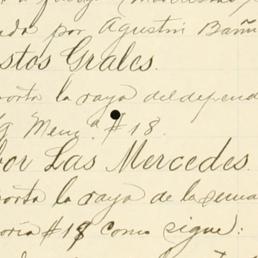 por Agustin
stos Grales.
porta la raya del depend
Menª. #18.
bor Las Mercedes.
porta la raya de la sema
oria #18 como sigue: